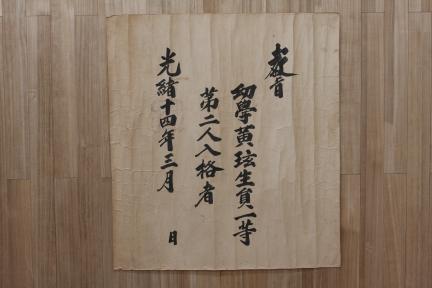 敎旨
幼學黃玹生員一等
第二人入格者
光緖十四年三月　日